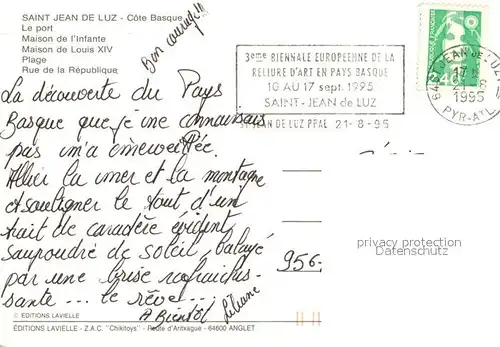 SAINT JEAN DE LUZ - Côte Basque
Le port
Maison de l'Infante
Maison de Louis XIV
Plage
Rue de la République
Bon courage!!!
3eme BIENNALE EUROPEENNE DE LA
RELIURE D'ART EN PAYS BASQUE
10 AU 17 sept. 1995
SAINT-JEAN de LUZ
ST JEAN DE LUZ PPAL 21-8-95
64 ST JEAN DE LUZ
17
1995
PYR-ATL.
La découverte du Pays
Basque que je ne connaissais
pas m'a émerveillée.
Allier la mer et la montagne
et souligner le tout d'un
trait de caractère évident,
saupoudré de soleil, balayé
par une brise rafraichis-
sante ... le rêve...
A Bientôt
Liliane
956.
privacy protection
Datenschutz
© EDITIONS LAVIELLE
ÉDITIONS LAVIELLE - Z.A.C. "Chikitoys" - Route d'Aritxague - 64600 ANGLET